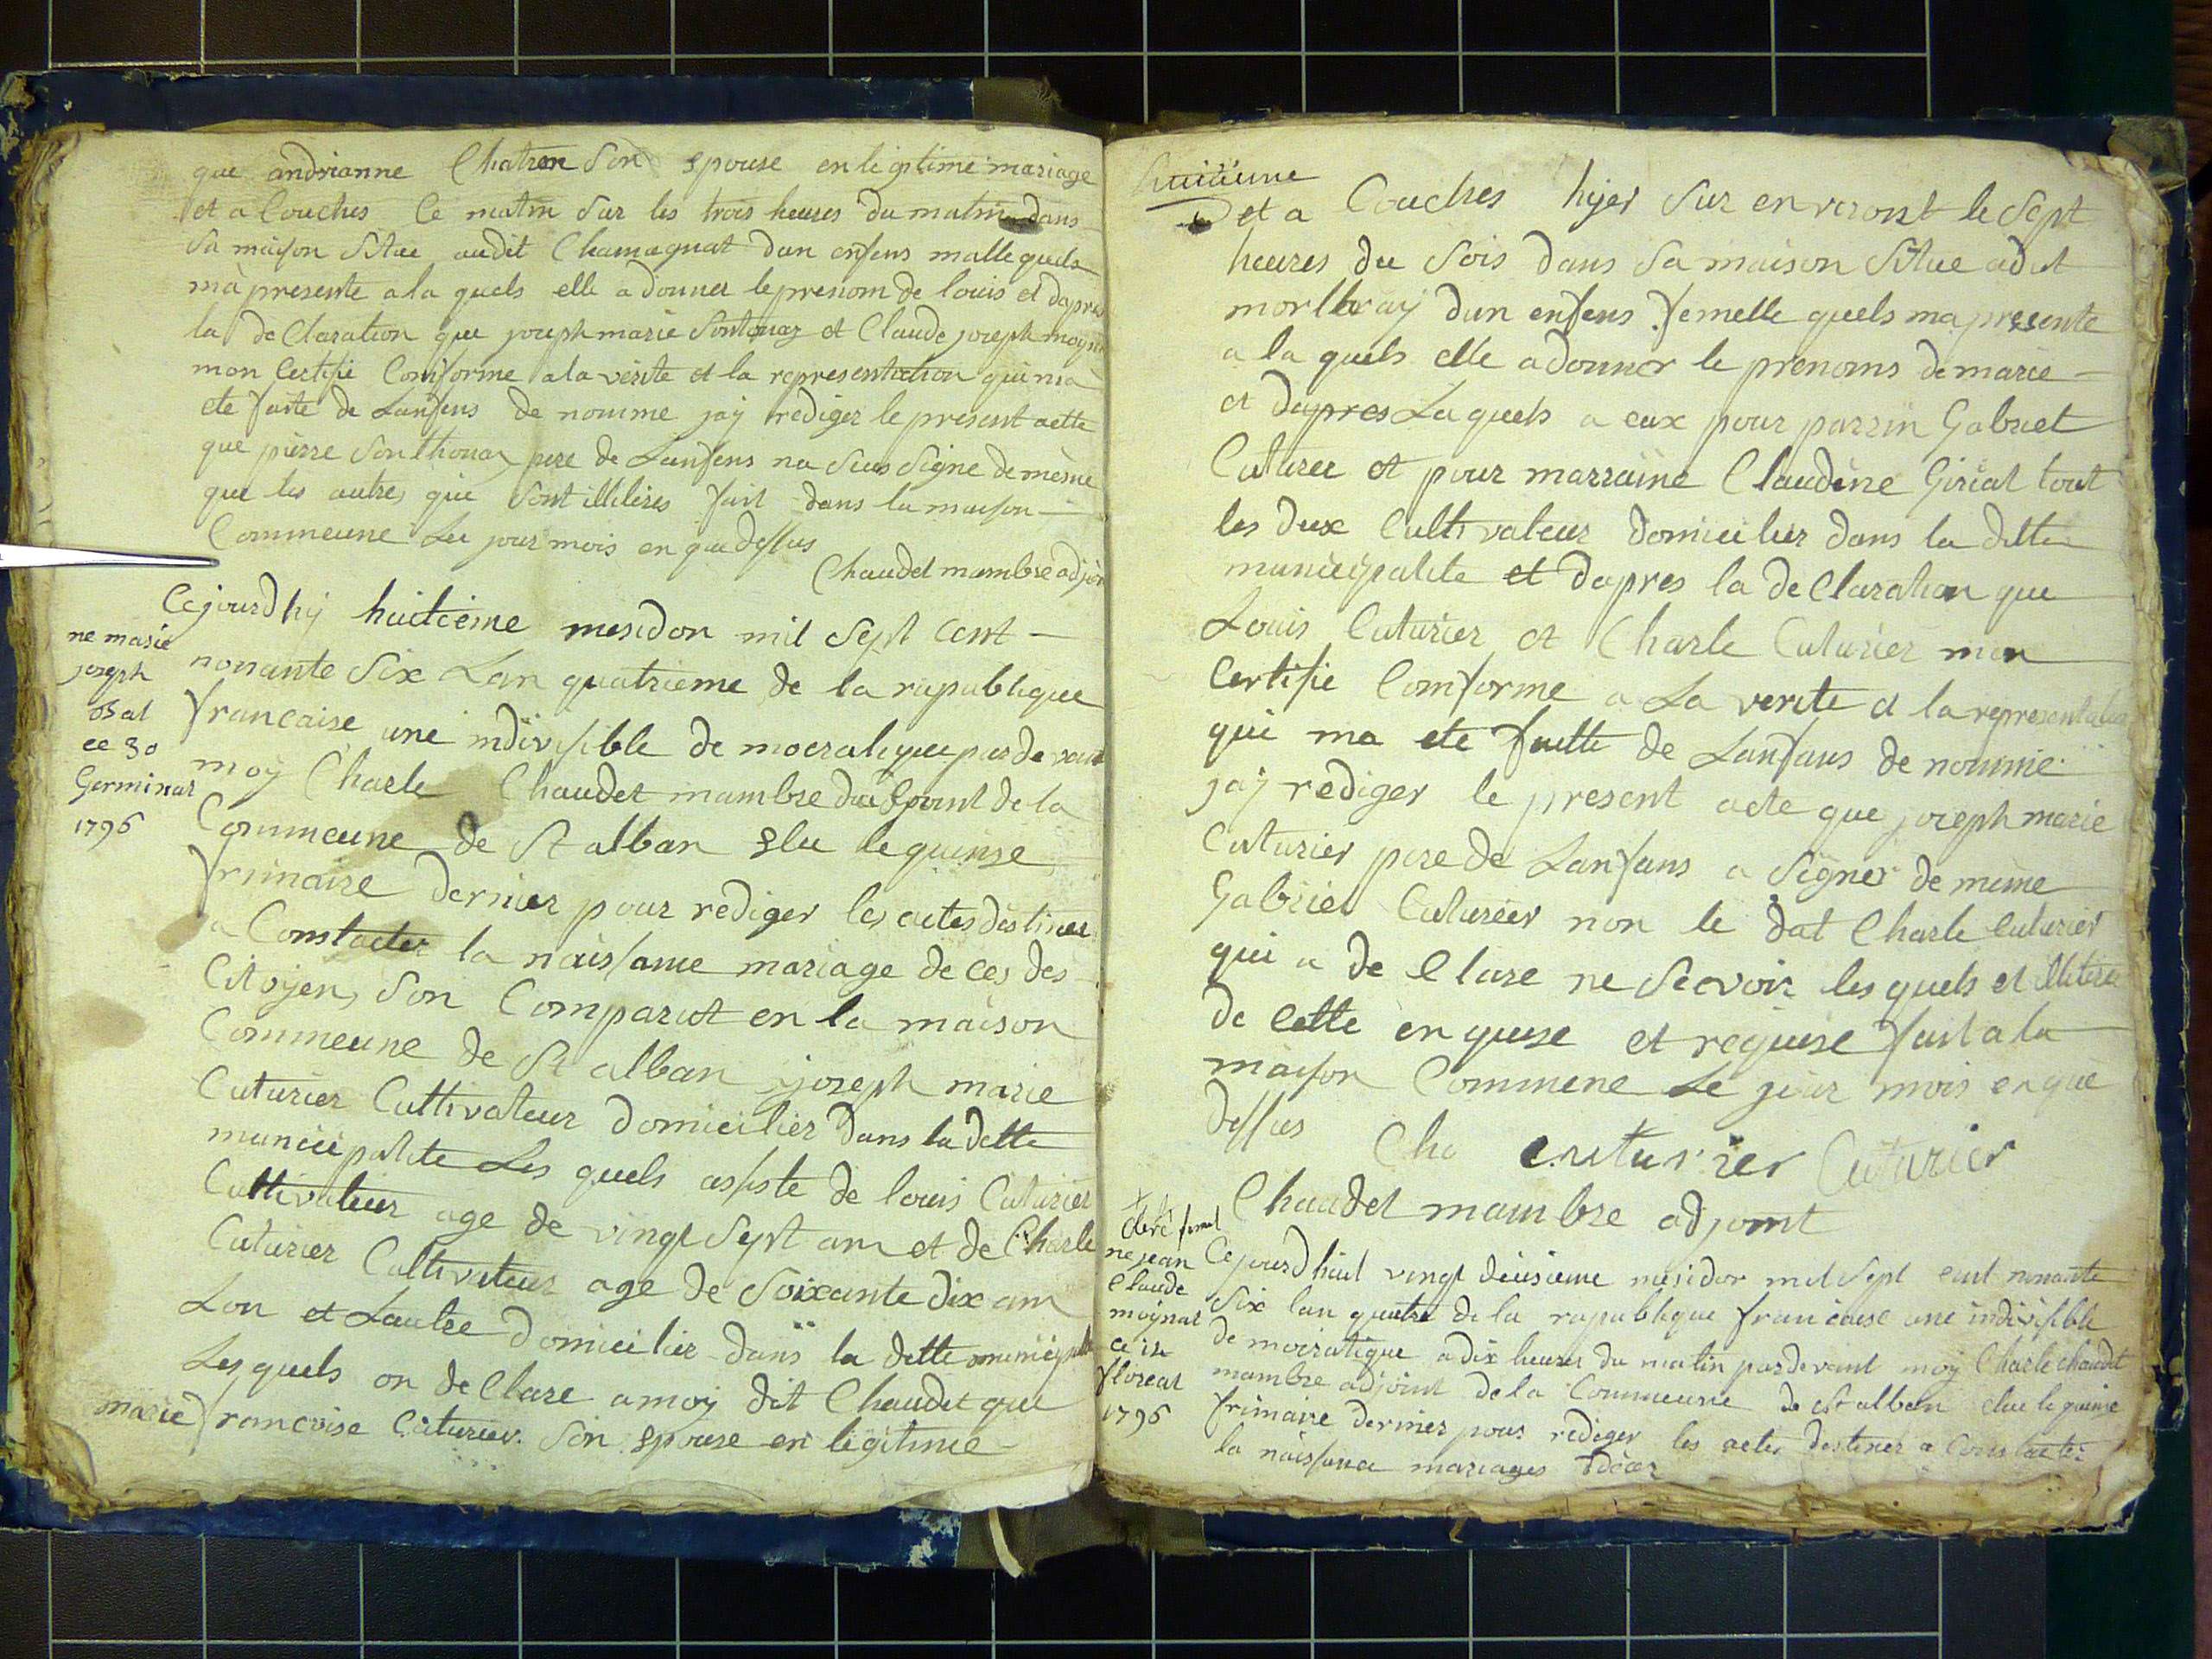 que andrianne Chatron Son epouse en legitime mariage
et a Couches Ce matin Sur les trois heures du matin dans
Sa maison Situe audit Chamagnat dun enfens malle quels
mà presente a la quels elle a donner le prenom de louis et dapres
la de Claration que joseph marie Sontonaz et Claude joseph moyn
mon Certifie Comforme a la verite et la representation qui ma
ete faite de Lanfens de nomme jaÿ rediger le present actte
que pierre Sonthonax pere de Lanfens na Seus Signe de mème
que les autres que Sont illiteres fait dans la maison
Commeune Les jour mois en que dessus
Chaudet mambre adjoin
Cejourdhÿ huitième mesidor mil Sept Cent
nonante Six Lan quatrieme de la rapublique
francaise une indivisible de mocratique par de vant
moÿ Charle Chaudet mambre du adjoint de la
Commeune de St alban Elu le quinse
frimaire dernier pour rediger les actes destinez
a Constacter la naissance mariage de ces des
Citoyens Son Comparut en la maison
Commeune de St alban joseph marie
Cuturier Cultivateur domicilier dans la ditte
municipalite Les quels assiste de louis Cuturier
Cultivateur age de vingt Sept am et de Charle
Cuturier Cultivateur age de Soixante dix am
Lon et Lautre domicilier dans la ditte municipalite
Les quels on de Clare a moÿ dit Chaudet que
marie francoise Cuturier Son epouse en legitime
ne marie
joseph
ce 30
Germinal
1796
et a Couches hÿer Sur environt le Sept
heures du Soir dans Sa maison Situe adit
morlhraÿ dun enfens femelle quels ma presente
a la quels elle a donner le prenoms de marie
et dapres Laquels a eux pour parrin Gabriel
Cuturer et pour marraine Claudine Giriat tout
les deux Cultivateur domicilier dans la ditte
municipalite et dapres la de Claration que
Louis Cuturier et Charle Cuturier mon
Certifie Comforme a La verite et la representation
qui ma ete faitte de Lanfans de nomme
jaÿ rediger le present acte que joseph marie
Cuturier pere de Lanfans a Signer de même
Gabriel Cuturier non le dat Charle Cuturier
qui a de Clare ne Scavoir les quels et illitere
de Cette enquise et requise fait a la
maison Commene Le jour mois en que
dessus
Cho cuturier Cuturier
Chaudet mambre adjoint
ne jean
Claude
moynat
ce 12
floreal
1796
Cejourdhui vingt deusieme mesidor mil Sept cent nonante
Six lan quatre de la rapublique francaise une indivisible
de mocratique a dix heures du matin pardevant moÿ Charle chaudet
mambre adjoint de la Commeune de St alban elue le quinse
frimaire dernier pour rediger les actes destinez a Constacter
la naissance mariages deces